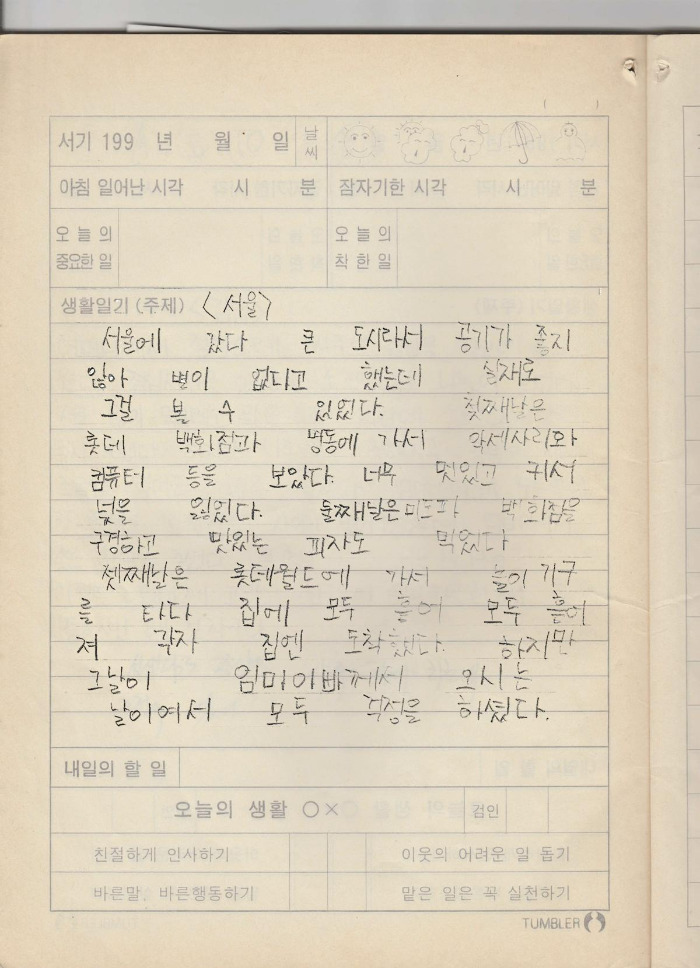 서기 199 년 월 일 날씨
아침 일어난 시각 시 분 잠자기한 시각 시 분
오늘의 중요한 일 오늘의 착한 일
생활일기 (주제) <서울>
서울에 갔다 큰 도시라서 공기가 좋지
않아 별이 없다고 했는데 실재로
그걸 볼 수 있었다. 첫째날은
롯데 백화점과 명동에 가서 악세사리와
컴퓨터 등을 보았다. 너무 멋있고 커서
넋을 잃었다. 둘째날은 미도파 백화점을
구경하고 맛있는 피자도 먹었다
셋째날은 롯데월드에 가서 놀이 기구
를 타다 집에 모두 흩어 모두 흩어
져 각자 집엔 도착했다. 하지만
그날이 엄마아빠께서 오시는
날이여서 모두 걱정을 하셨다.
내일의 할 일
오늘의 생활 ○× 검인
친절하게 인사하기 이웃의 어려운 일 돕기
바른말, 바른행동하기 맡은 일은 꼭 실천하기
TUMBLER